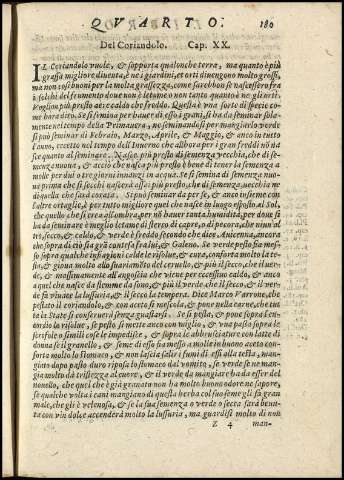 QVARTO. 180
Del Coriandolo. Cap. XX.
IL Coriandolo vuole, & sopporta qualonche terra, ma quanto è più
grassa migliore diventa, & ne i giardini, et orti divengono molto grossi,
ma non così buoni per la molta grassezza, come farebbon se nascessero fra
Vogliono più presto aere caldo che freddo. Questa è una sorte di specie co
me hora dico. Se si semina per hauer di essi i grani, si ha da seminar sola
mente nel tempo della Primauera, ma seminandosi per mangiarlo verde
si può seminar di Febraio, Marzo, Aprile, & Maggio, & anco in tutto
l'anno, eccetto nel tempo dell'Inuerno che allhora per i gran freddi nõ na
sce quanto al seminare. Nasce più presto di semenza vecchia, che di se-
menza nuoua, & acciò che nasca più presto è bene di tener la semenza a
molle per dui o tre giorni innanzi in acqua. Se si semina di semenza nuo-
ua prima che si secchi nascerà assai più presto, che di semenza vecchia ne
di quella che sarà cauata. Si può seminar da per se, & anco insieme con
l'altre ortaglie, & per tanto migliore quel che nasce in luogo esposto al Sol,
che quello che si crea all'ombra, per nõ hauer tanta humidità, per doue si
ha da seminare è meglio letame di sterco di capre, o di pecore, che niun' al
tro, & secco, & caldo, & così è freddo & secondo che dice Auicenna, ancora
che sopra di ciò sia grã contesa fra lui, & Galeno. Se verde pesto sia mes-
so sopra qualche infiagioni calde le risolue, & cura, conforta molto la te-
sta, & gioua molto allo stuarimẽto del ceruello, & più il secco, che il ver-
de, & mossiuamente all'angoscia che viene per eccessiuo caldo, & anco
quel che nasce da flemme da sono, & più il verde, che il secco, & il ver-
de fa viuace la lussuria, & il secco la tempera. Dice Marco Varrone, che
pestato il coriandolo, & con aceto si mescola, & pone nella carne, che tut
ta la State si conseruerà senza guastarsi. Se si pesta, & pone sopra l'en-
cordio lo risolue, se pesto si mette anco con meglio, & vua passa sopra le
scrofole o simili cose le impedisce, & sopra le abbrusciature con latte di
donna fa il granello, & seme di esso fa messo a molle in buono aceto con-
forta molto lo stomaco, & non lascia salir i fumi di essi alla testa, man-
giato dopo pasto duro riposa lo stomaco dal vomito, se verde se ne man-
gia molto dà tristezza al cuore, & il verde da mangiare ha da esser del
nouello, che quel che è già granato non ha molto buono odore ne sapore,
se qualche volta i cani mangiano di questa herba col suo seme gli fa gran
male, che gli è velenosa, & se la sua semenza o verde o secca sarà beuu-
ta con vin dolce accenderà molto la lussuria, ma guardisi molto di non
Z 4 man-